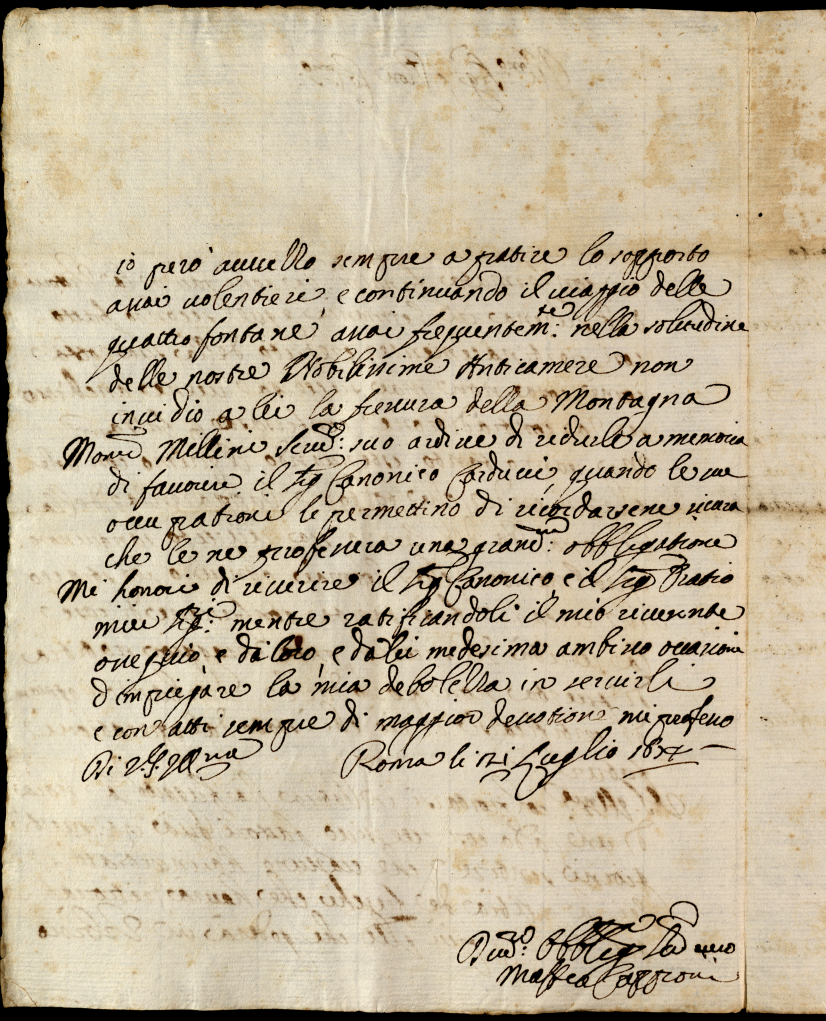 io però avvezzo sempre a patire lo sopporto
assai volentieri, e continuando il viaggio delle
quattro fontane, assai frequentem.te nella solitudine
delle nostre Nobilissime Anticamere non
invidio a lei la frescura della Montagna
Mons.r Mellini suo ardire di ridurle a memoria
di favorire il Sig Canonico Carducci, quando le sue
occupationi le permettino di ricordarsene
che le ne professerà una grand.ma obbligatione
Mi honori di riverire il Sig Canonico, e il Sig
miei Sig.ri mentre ratificandoli il mio riverente
ossequio, e da loro, e da lei medesima ambisco occasione
d'impiegare la mia debolezza in servirli
e con atti sempre di maggior devotione mi professo
Di V.S. Ill.ma Roma li 21 Luglio
Div.mo Obblig
Maffeo